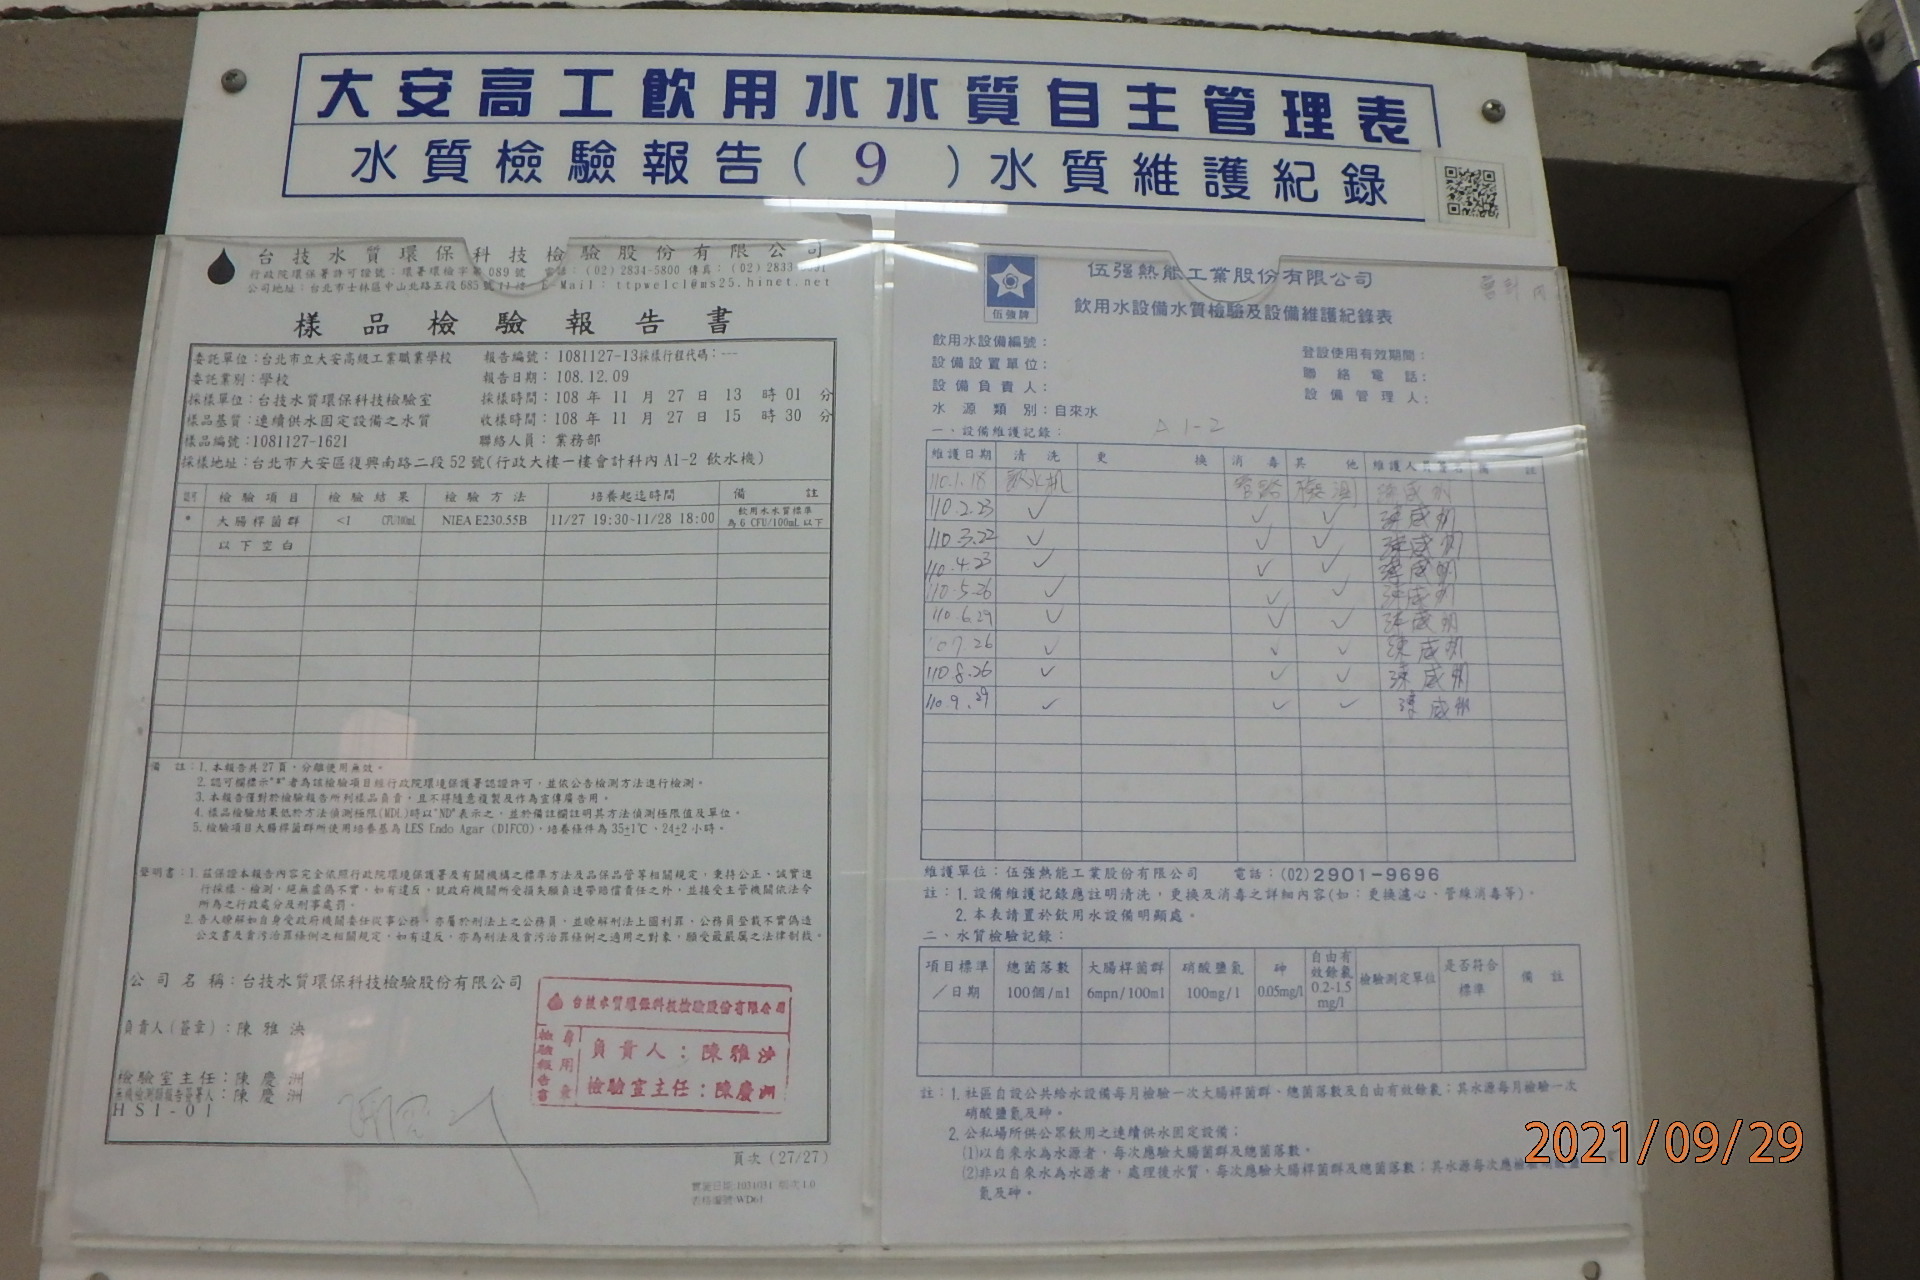 大安高工飲用水水質自主管理表
水質檢驗報告( 9 )水質維護紀錄
台技水質環保科技檢驗股份有限公司
行政院環保署許可證號：環署環檢字第089號 電話：(02)2834-5800 傳真：(02)2833
公司地址：台北市士林區中山北路五段685號 E-Mail：ttpwelcl@ms25.hinet.net
樣品檢驗報告書
委託單位：台北市立大安高級工業職業學校 報告編號：1081127-13採樣行程代碼：---
委託業別：學校 報告日期：108.12.09
採樣單位：台技水質環保科技檢驗室 採樣時間：108 年 11 月 27 日 13 時 01 分
樣品基質：連續供水固定設備之水質 收樣時間：108 年 11 月 27 日 15 時 30 分
樣品編號：1081127-1621 聯絡人員：業務部
採樣地址：台北市大安區復興南路二段52號(行政大樓一樓會計科內A1-2 飲水機)
檢驗項目 檢驗結果 檢驗方法 培養起迄時間 備註
* 大腸桿菌群 <1 CFU/100mL NIEA E230.55B 11/27 19:30~11/28 18:00 飲用水水質標準
為6 CFU/100mL以下
以下空白
備 註：1.本報告共27頁，分離使用無效。
2.認可欄標示"*"者為該檢驗項目經行政院環境保護署認證許可，並依公告檢測方法進行檢測。
3.本報告僅對於檢驗報告所列樣品負責，且不得隨意複製及作為宣傳廣告用。
4.樣品檢驗結果低於方法偵測極限(MDL)時以"ND"表示之，並於備註欄註明其方法偵測極限值及單位。
5.檢驗項目大腸桿菌群所使用培養基為LES Endo Agar (DIFCO)，培養條件為35±1℃、24±2小時。
聲明書：1.茲保證本報告內容完全依照行政院環境保護署及有關機構之標準方法及品保品管等相關規定，秉持公正、誠實進
行採樣、檢測，絕無虛偽不實，如有違反，就政府機關所受損失願負連帶賠償責任之外，並接受主管機關依法令
所為之行政處分及刑事處罰。
2.吾人瞭解如自身受政府機關委任從事公務，亦屬於刑法上之公務員，並瞭解刑法上圖利罪、公務員登載不實偽造
公文書及貪污治罪條例之相關規定，如有違反，亦為刑法及貪污治罪條例之適用之對象，願受最嚴厲之法律制裁。
公司名稱：台技水質環保科技檢驗股份有限公司
負責人(簽章)：陳雅泱
檢驗室主任：陳慶洲
無機檢測類報告簽署人：陳慶洲
HSI-01
台技水質環保科技檢驗股份有限公司
檢驗報告書
專用章
負責人：陳雅泱
檢驗室主任：陳慶洲
頁次(27/27)
伍強牌
伍強熱能工業股份有限公司
飲用水設備水質檢驗及設備維護紀錄表
飲用水設備編號：
設備設置單位： 登設使用有效期間：
設備負責人： 聯絡電話：
水源類別：自來水 設備管理人：
一、設備維護記錄： A1-2
維護日期 清洗 更換 消毒 其他 維護人員簽名 備註
110.1.18 飲水机 管路 檢測
110.2.23 ✓ ✓ ✓
110.3.22 ✓ ✓ ✓
110.4.23 ✓ ✓ ✓
110.5.26 ✓ ✓ ✓
110.6.29 ✓ ✓ ✓
7.26 ✓ ✓ ✓
110.8.26 ✓ ✓ ✓
110.9.29 ✓ ✓ ✓
維護單位：伍強熱能工業股份有限公司 電話：(02)2901-9696
註：1.設備維護記錄應註明清洗，更換及消毒之詳細內容(如：更換濾心、管線消毒等)。
2.本表請置於飲用水設備明顯處。
二、水質檢驗記錄：
項目標準／日期 總菌落數100個/ml 大腸桿菌群6mpn/100ml 硝酸鹽氮100mg/l 砷0.05mg/l 自由有效餘氯0.2-1.5mg/l 檢驗測定單位 是否符合標準 備註
註：1.社區自設公共給水設備每月檢驗一次大腸桿菌群、總菌落數及自由有效餘氯；其水源每月檢驗一次
硝酸鹽氮及砷。
2.公私場所供公眾飲用之連續供水固定設備：
(1)以自來水為水源者，每次應驗大腸桿菌群及總菌落數。
(2)非以自來水為水源者，處理後水質，每次應驗大腸桿菌群及總菌落數；其水源每次應檢驗硝酸鹽
氮及砷。
2021/09/29